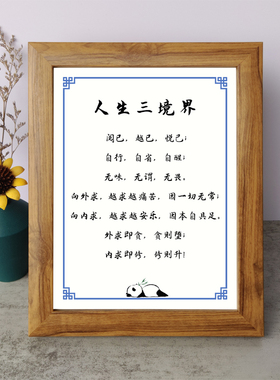 人生三境界
阅己，越己，悦己；
自行，自省，自醒；
无味，无谓，无畏。
向外求，越求越痛苦，因一切无常；
向内求，越求越安乐，因本自具足。
外求即贪，贪则堕；
内求即修，修则升！